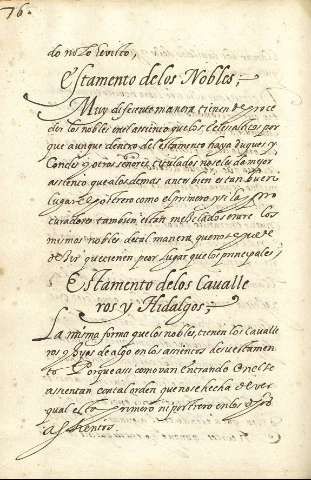 76.
do no lo he visto,
Estamento de los Nobles,
Muy diferente manera tienen de proce
der los nobles en el assiento que los Eclesiasticos por
que aunque dentro del estamento haya duques y
Condes y otros señores titulados no se les da mejor
assiento que a los demas antes bien estan tan buen
lugar el postrero como el primero y si los pro
curadores tambien estan mesclados entre los
mismos nobles de tal manera que no se puede
dezir que tienen peor lugar que los principales,
Estamento de los Cavalle
ros y Hidalgos,
La misma forma que los nobles, tienen los Cavalle
ros y hijos de algo en los assientos de su estamen
to Porque assi como van Entrando en el se
assientan con tal orden que no se hecha de ver
qual es el primero ni postrero en los
assientos.